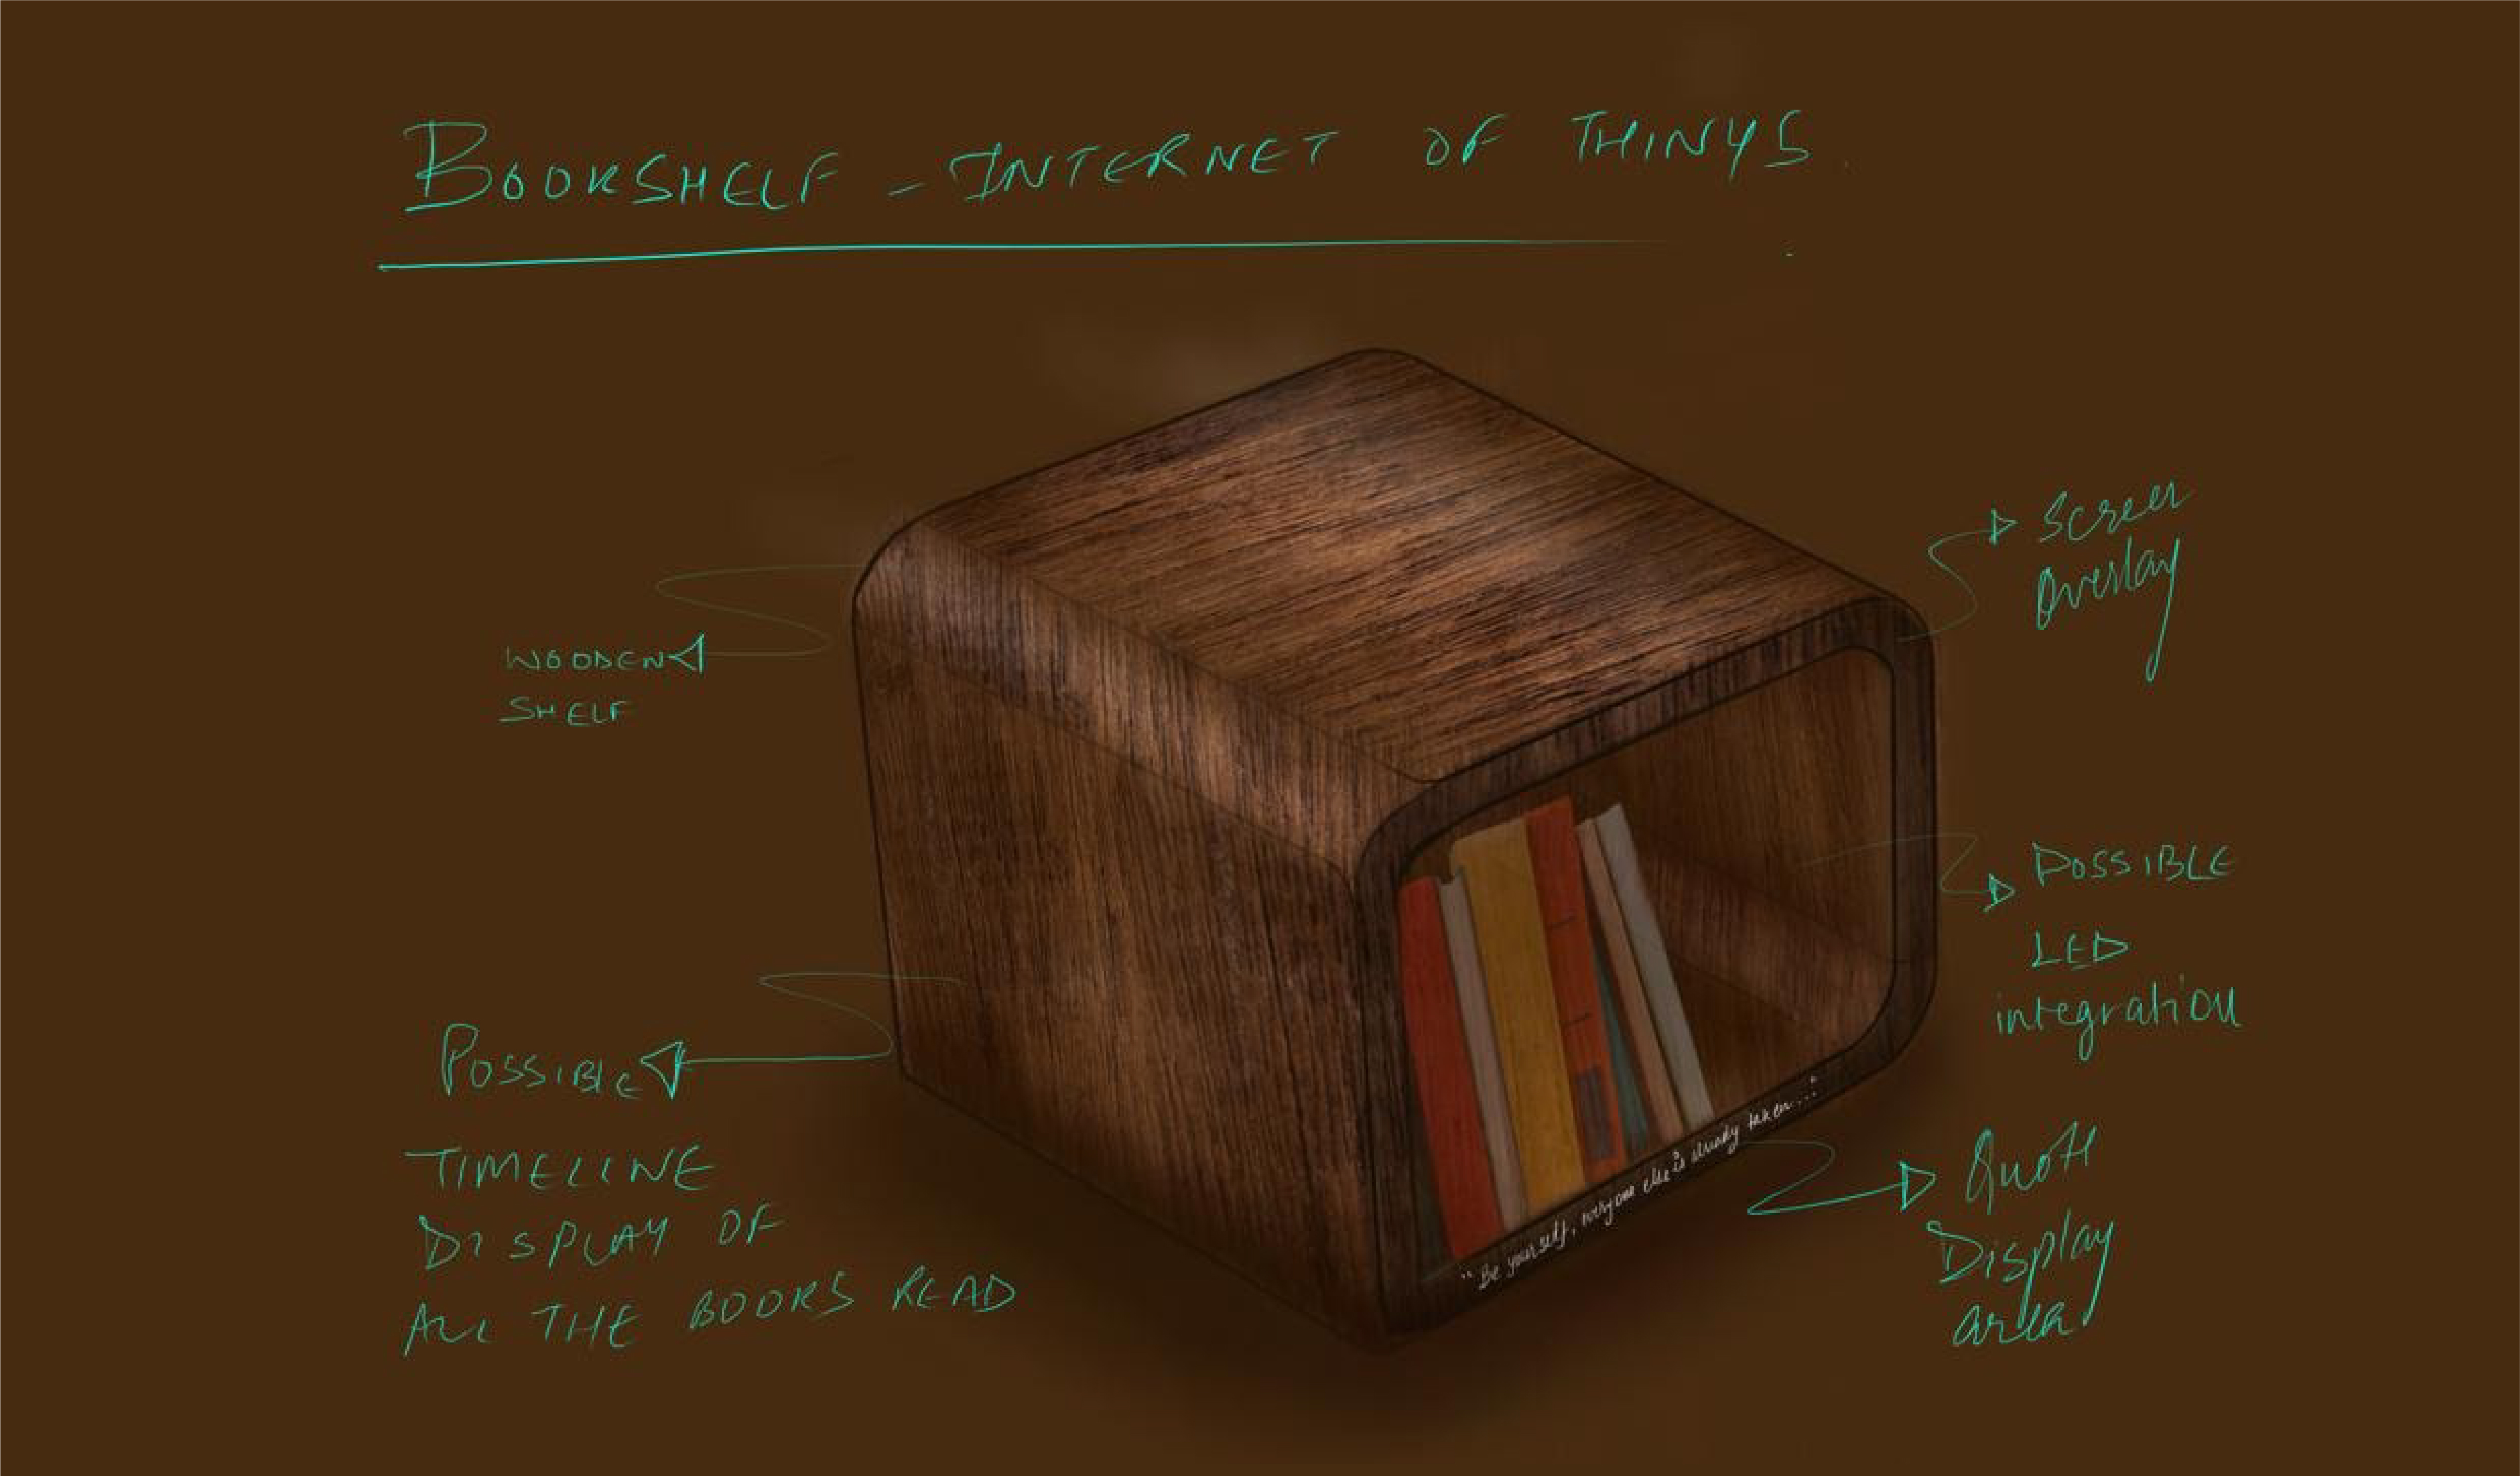 BOOKSHELF - INTERNET OF THINYS
Screen
Overlay
WOODEN
SHELF
POSSIBLE
LED
integration
POSSIBLE
TIMELINE
DISPLAY OF
ALL THE BOOKS READ
"Be yourself, everyone else is already taken..."
Quote
Display
area